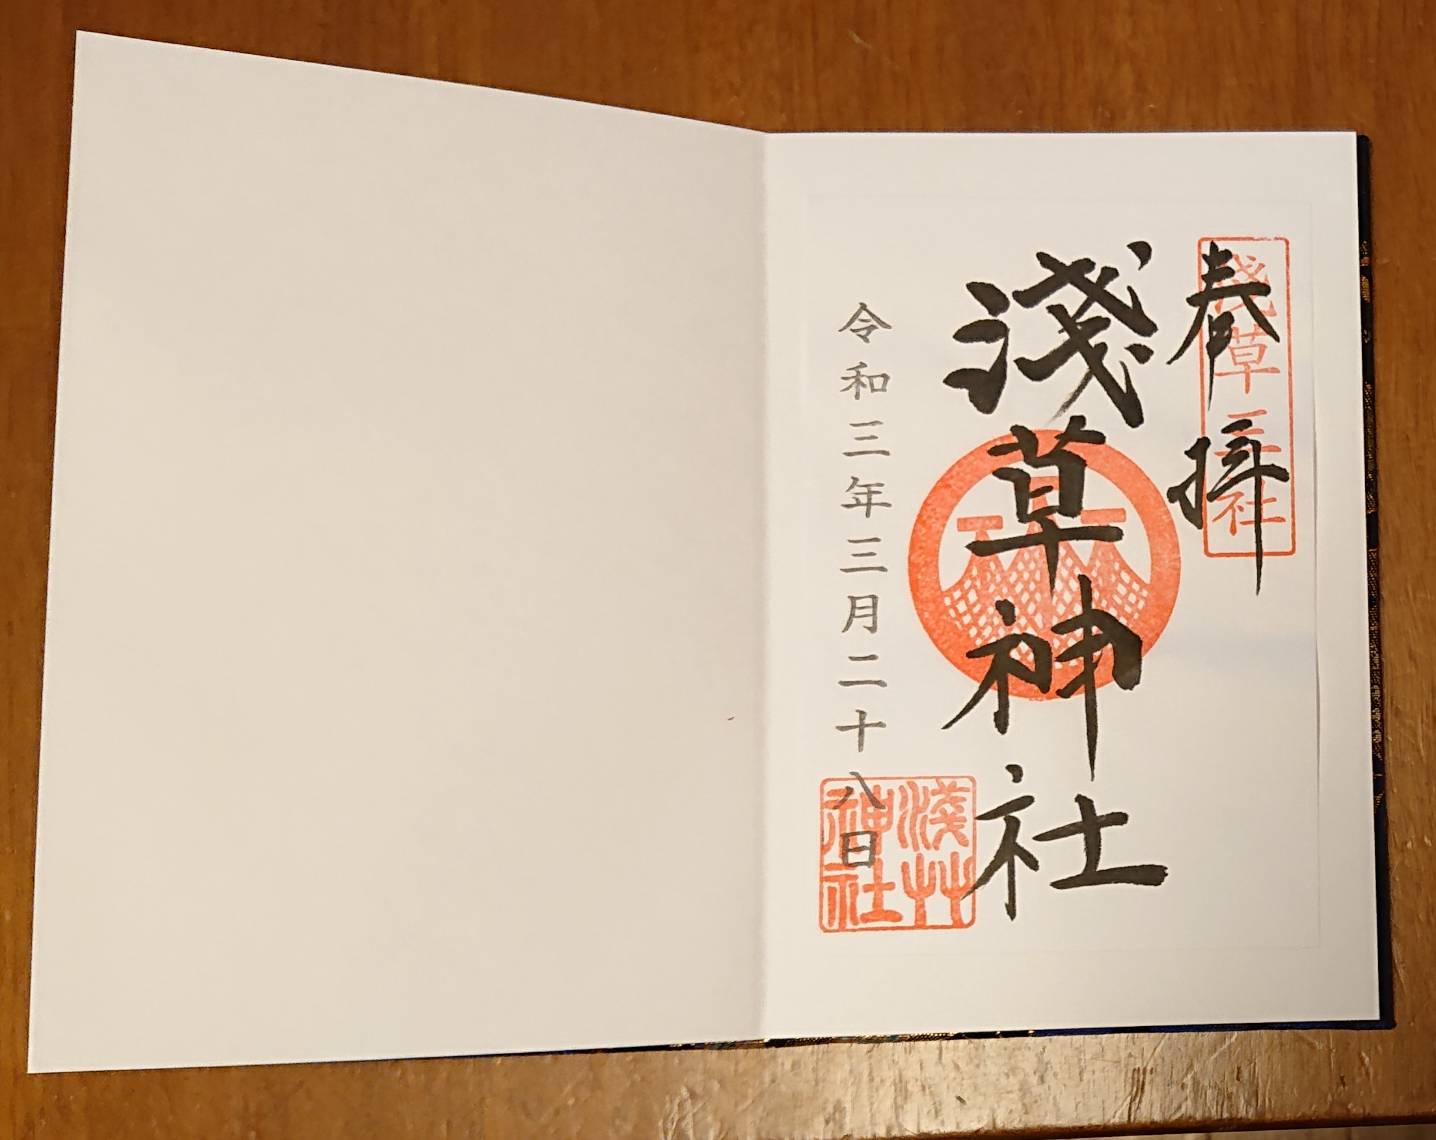 奉拝
浅草三社
淺草神社
令和三年三月二十八日
淺艸神社